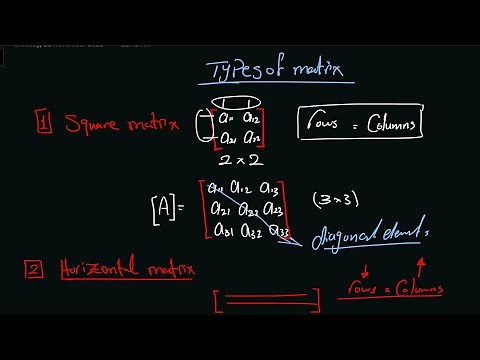 Types of matrix
1 Square matrix [a11 a12
a21 a22]
2 × 2
rows = Columns
[A] = [a11 a12 a13
a21 a22 a23
a31 a32 a33]
(3×3)
diagonal
2 Horizontal matrix
rows = Columns